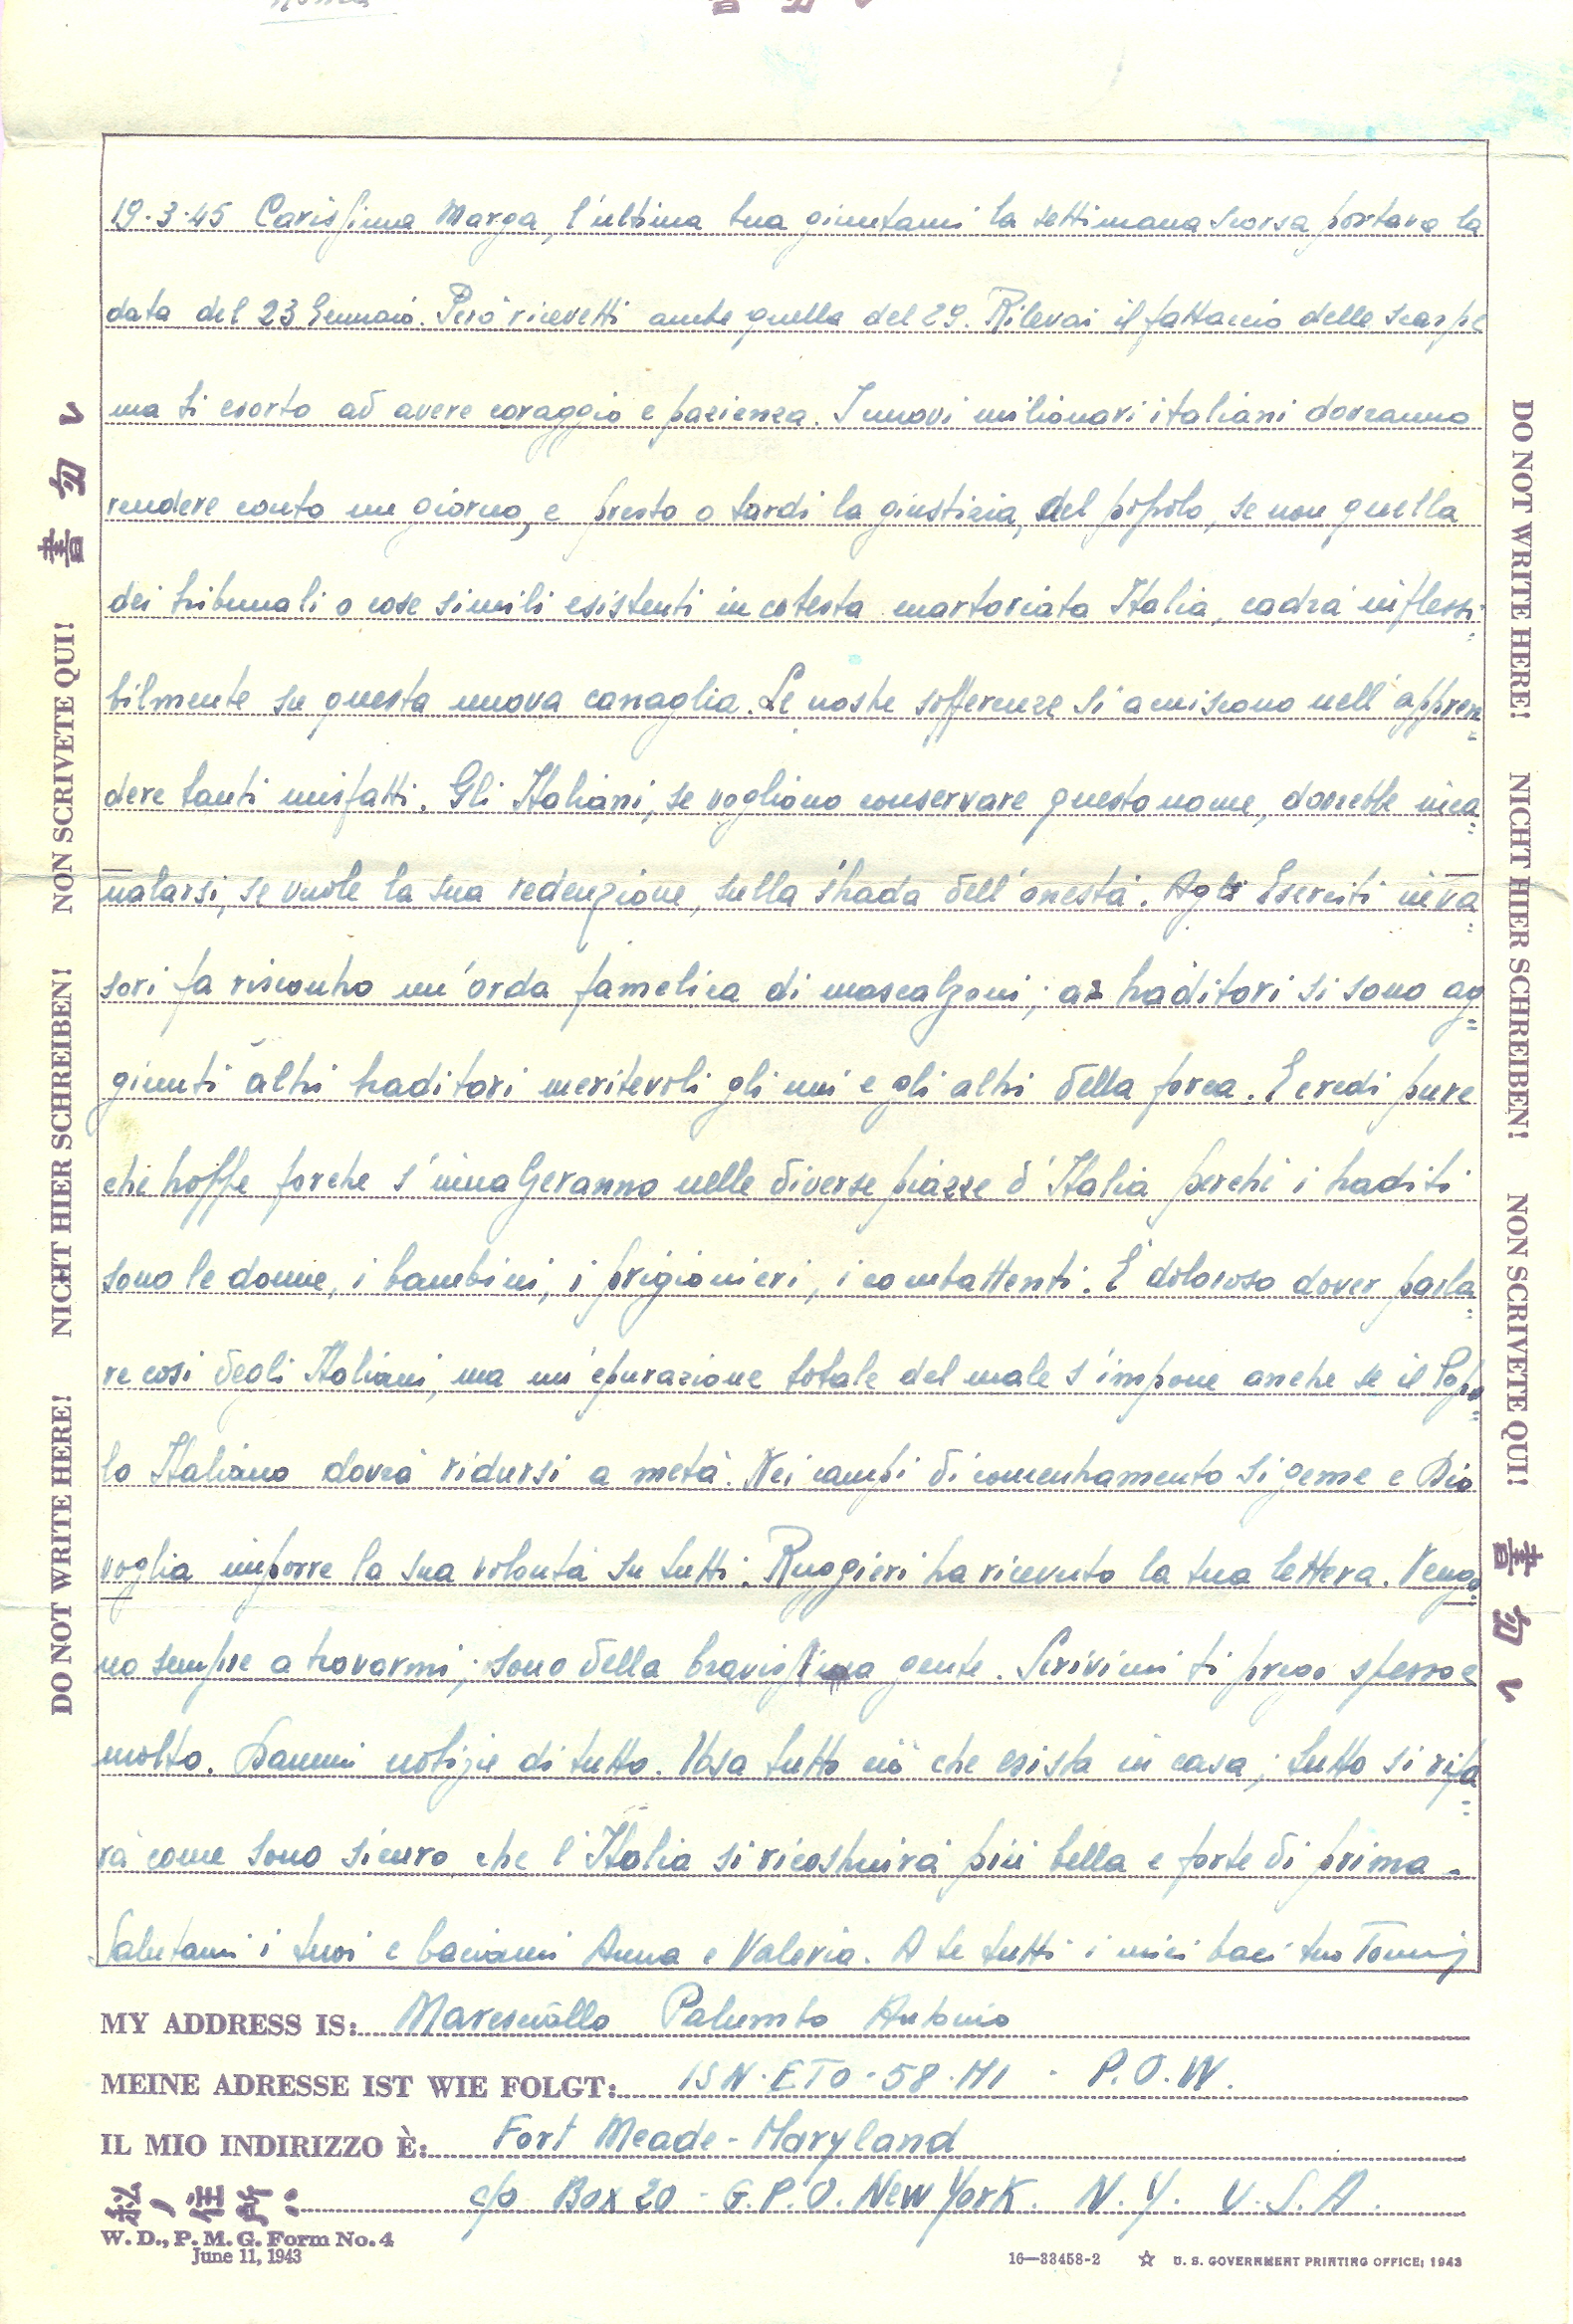 19·3·45 Carissima Marga, l'ultima tua giuntami la settimana scorsa portava la
data del 23 Gennaio. Però ricevetti anche quella del 29. Rilevai il fattaccio delle scarpe
ma ti esorto ad avere coraggio e pazienza. I nuovi milionari italiani dovranno
rendere conto un giorno, e presto o tardi la giustizia, del popolo, se non quella
dei tribunali o cose simili esistenti in cotesta martoriata Italia, cadrà inflessi=
bilmente su questa nuova canaglia. Le nostre sofferenze si acuiscono nell'appren=
dere tanti misfatti. Gli Italiani, se vogliono conservare questo nome, dovrebbe inca=
nalarsi, se vuole la sua redenzione, sulla strada dell'onestà. Agli Eserciti inva=
sori fa riscontro un'orda famelica di mascalzoni; ai traditori si sono ag=
giunti altri traditori meritevoli gli uni e gli altri della forca. E credi pure
che troppe forche s'innalzeranno nelle diverse piazze d'Italia perchè i traditi
sono le donne, i bambini, i prigionieri, i combattenti. È doloroso dover parla=
re così degli Italiani, ma un'epurazione totale del male s'impone anche se il Popo=
lo Italiano dovrà ridursi a metà. Nei campi di concentramento si geme e Dio
voglia imporre la sua volontà su tutti. Ruggieri ha ricevuto la tua lettera. Vengo=
no sempre a trovarmi; sono della bravissima gente. Scrivimi ti prego spesso e
molto. Dammi notizie di tutto. Usa tutto ciò che esista in casa; tutto si rifa=
rà come sono sicuro che l'Italia si ricostruirà più bella e forte di prima.
Salutami i tuoi e baciami Anna e Valeria. A te tutti i miei baci tuo Tonny
MY ADDRESS IS: Maresciallo Palumbo Antonio
MEINE ADRESSE IST WIE FOLGT: ISN·ETO·58·MI - P.O.W.
IL MIO INDIRIZZO È: Fort Meade - Maryland
私ノ住所: c/o Box 20 - G.P.O. New York. N.Y. U.S.A.
W. D., P. M. G. Form No. 4
June 11, 1943
16—33458-2 ☆ U. S. GOVERNMENT PRINTING OFFICE: 1943
DO NOT WRITE HERE! NICHT HIER SCHREIBEN! NON SCRIVETE QUI! 書勿レ
DO NOT WRITE HERE! NICHT HIER SCHREIBEN! NON SCRIVETE QUI! 書勿レ